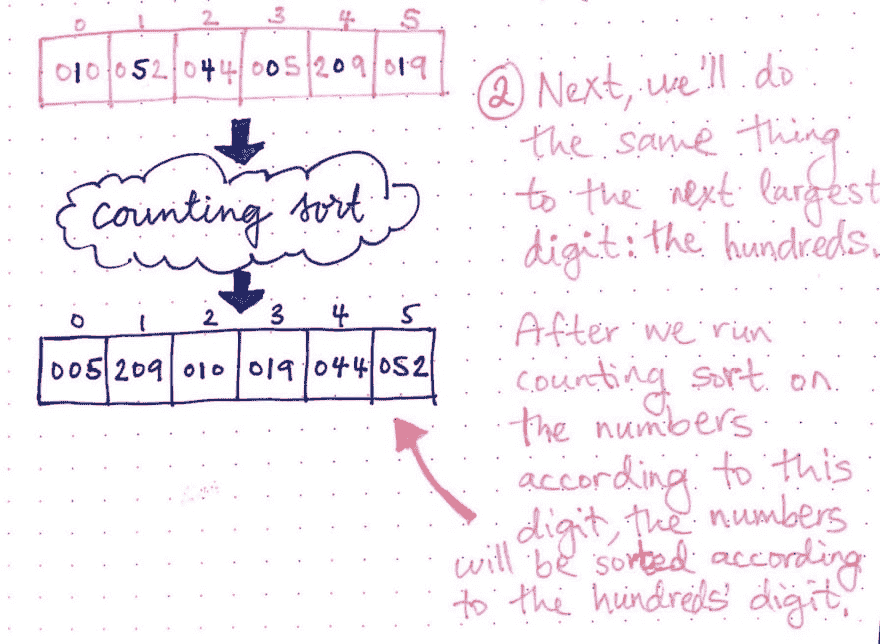 0 1 2 3 4 5
010 052 044 005 209 019
counting sort
0 1 2 3 4 5
005 209 010 019 044 052
② Next, we'll do
the same thing
to the next largest
digit: the hundreds.
After we run
counting sort on
the numbers
according to this
digit, the numbers
will be sorted according
to the hundreds' digit.